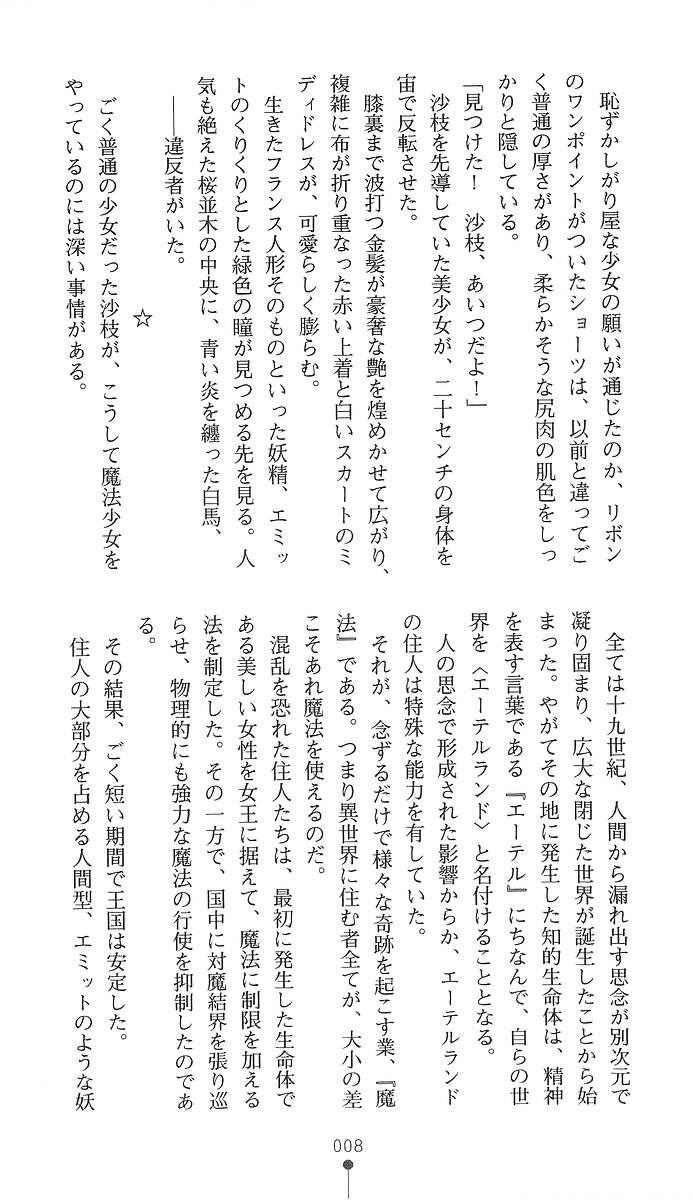 恥ずかしがり屋な少女の願いが通じたのか、リボン
のワンポイントがついたショーツは、以前と違ってご
く普通の厚さがあり、柔らかそうな尻肉の肌色をしっ
かりと隠している。
「見つけた！　沙枝、あいつだよ！」
沙枝を先導していた美少女が、二十センチの身体を
宙で反転させた。
膝裏まで波打つ金髪が豪奢な艶を煌めかせて広がり、
複雑に布が折り重なった赤い上着と白いスカートのミ
ディドレスが、可愛らしく膨らむ。
生きたフランス人形そのものといった妖精、エミッ
トのくりくりとした緑色の瞳が見つめる先を見る。人
気も絶えた桜並木の中央に、青い炎を纏った白馬、
――違反者がいた。
☆
ごく普通の少女だった沙枝が、こうして魔法少女を
やっているのには深い事情がある。
全ては十九世紀、人間から漏れ出す思念が別次元で
凝り固まり、広大な閉じた世界が誕生したことから始
まった。やがてその地に発生した知的生命体は、精神
を表す言葉である『エーテル』にちなんで、自らの世
界を〈エーテルランド〉と名付けることとなる。
人の思念で形成された影響からか、エーテルランド
の住人は特殊な能力を有していた。
それが、念ずるだけで様々な奇跡を起こす業、『魔
法』である。つまり異世界に住む者全てが、大小の差
こそあれ魔法を使えるのだ。
混乱を恐れた住人たちは、最初に発生した生命体で
ある美しい女性を女王に据えて、魔法に制限を加える
法を制定した。その一方で、国中に対魔結界を張り巡
らせ、物理的にも強力な魔法の行使を抑制したのであ
る。
その結果、ごく短い期間で王国は安定した。
住人の大部分を占める人間型、エミットのような妖
008